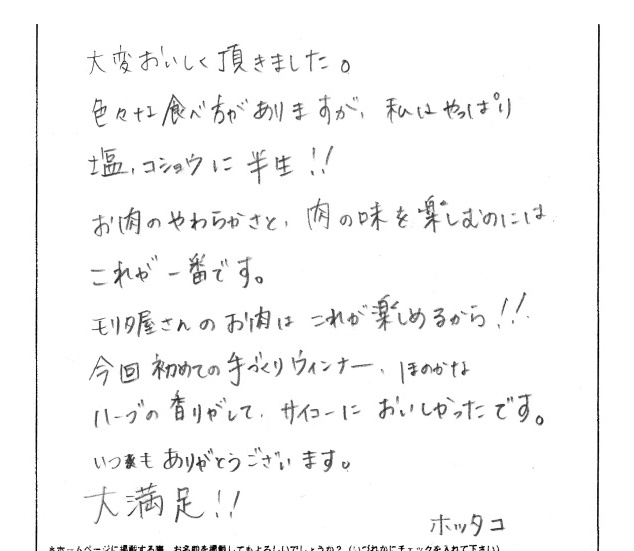 大変おいしく頂きました。
色々な食べ方がありますが、私はやっぱり
塩、コショウに半生!!
お肉のやわらかさと、肉の味を楽しむのには
これが一番です。
モリタ屋さんのお肉はこれが楽しめるから!!
今回初めての手づくりウィンナー、ほのかな
ハーブの香りがして、サイコーにおいしかったです。
いつもありがとうございます。
大満足!!
ホッタコ
*ホームページに掲載する事、お名前を掲載してもよろしいでしょうか?(いづれかにチェックを入れて下さい)